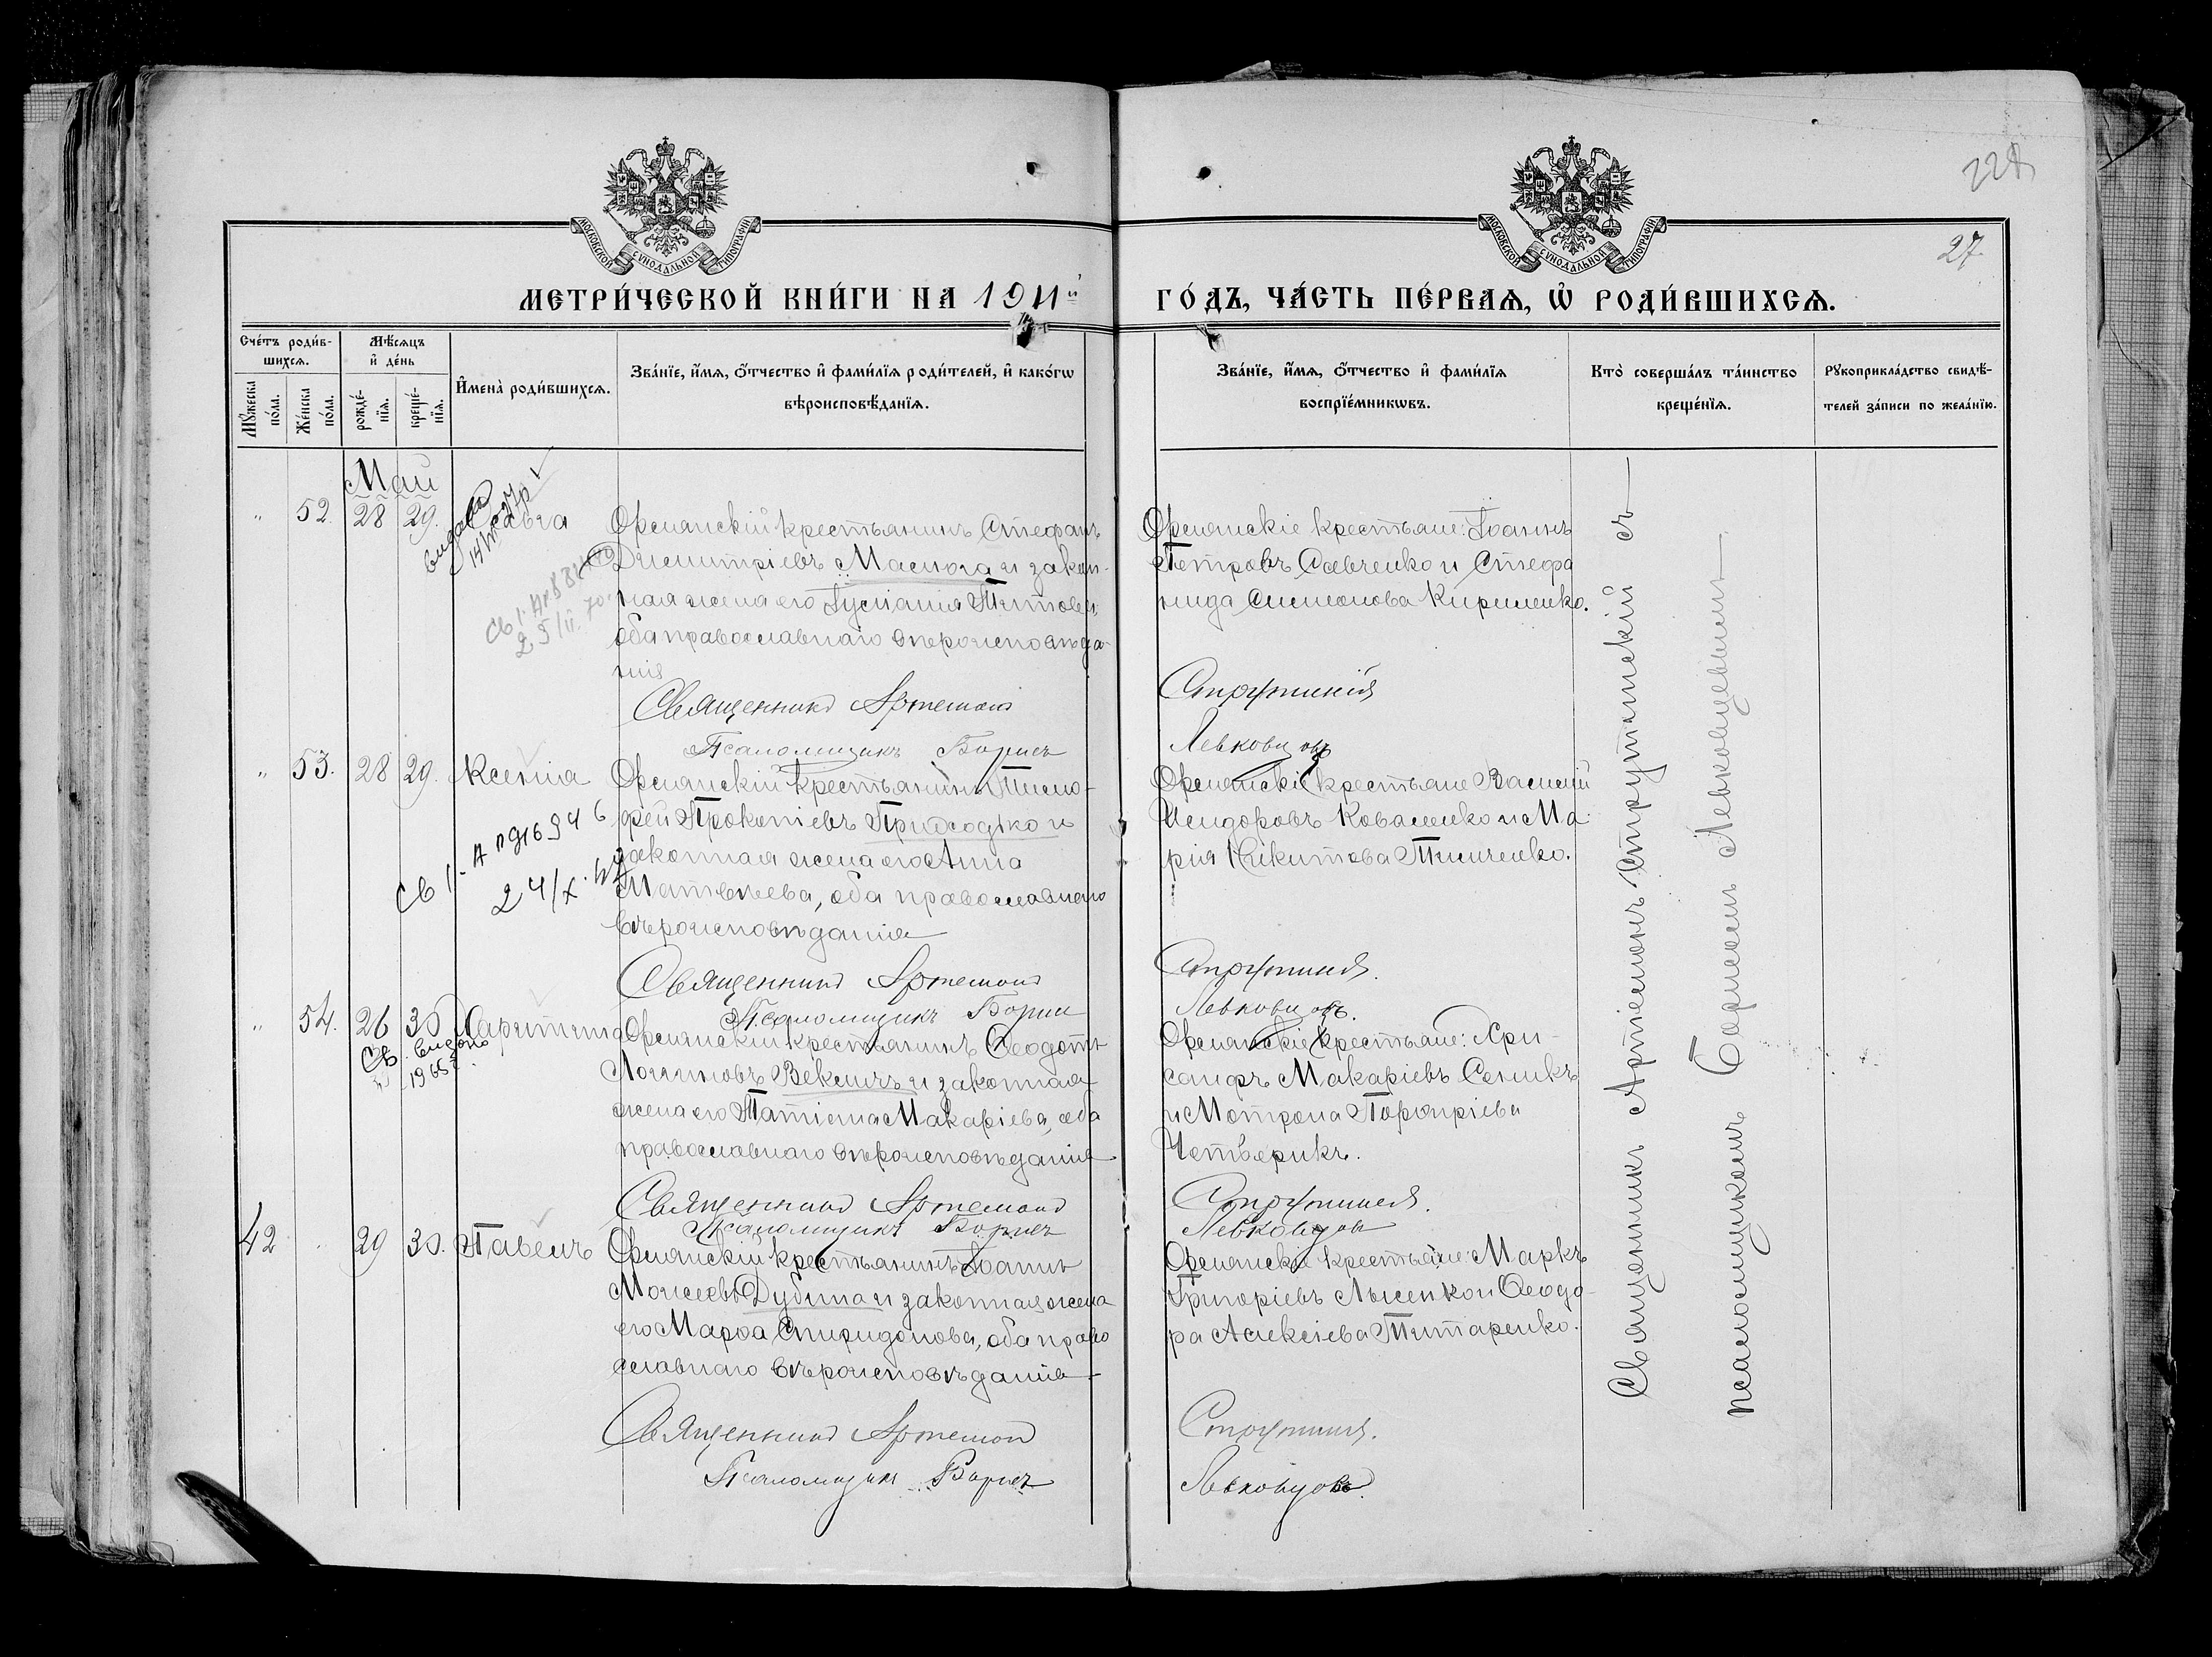 228
27
МОСКОВСКОЙ СѴНОДАЛЬНОЙ ТИПОГРАФІИ
МОСКОВСКОЙ СѴНОДАЛЬНОЙ ТИПОГРАФІИ
МЕТРИ́ЧЕСКОЙ КНИ́ГИ НА 1911й
ГО́ДЪ, ЧА́СТЬ ПЕ́РВАЯ, Ѡ҆ РОДИ́ВШИХСЯ.
Сче́тъ роди́в-
шихся.
Мꙋжеска по́ла.
Же́нска по́ла.
Мѣ́сяцъ
и҆ де́нь
рожде́-
нїя.
креще́-
нїя.
И҆мена̀ роди́вшихся.
Зва́нїе, и҆́мя, ѻ҆́тчество и҆ фами́лїя роди́телей, и҆ како́гѡ
вѣроисповѣ́данїя.
Зва́нїе, и҆́мя, ѻ҆́тчество и҆ фами́лїя
воспрїе́мникѡвъ.
Кто̀ соверша́лъ та́инство
креще́нїя.
Рꙋкоприкла́дство свидѣ́-
телей за́писи по жела́нїю.
Май
" 52. 28 29.
Орлянскій крестьянинъ Стефанъ
Димитріевъ Маслюга и закон-
ная жена его Іуліанія Титова,
оба православнаго вѣроисповѣда-
нія
Священникъ Артемонъ
Псаломщикъ Борисъ
Орлянскіе крестьяне: Іоаннъ
Петровъ Савченко и Стефа
нида Симеонова Кириленко.
Струтинскій
Левковцовъ
" 53. 28 29. Ксенія
Орлянскій крестьянинъ Тимо-
фей Прокопіевъ Приходько и
законная жена его Анна
Матвѣева, оба православнаго
вѣроисповѣданія
Священникъ Артемонъ
Псаломщикъ Борисъ
Орлянскіе крестьяне Василій
Исидоровъ Коваленко и Ма-
рія Никитова Тимченко.
Левковцовъ.
" 54. 26 30 Харитина
Св. видано
1965 г.
Орлянскій крестьянинъ Ѳеодотъ
Логиновъ Векличъ и законная
жена его Татіана Макаріева, оба
православнаго вѣроисповѣданія
Священникъ Артемонъ
Псаломщикъ Борисъ
Орлянскіе крестьяне: Хри-
санфъ Макаріевъ Сеникъ
и Мотрона Порфиріева
Четверикъ.
Левковцовъ
42 . 29 30. Павелъ
Орлянскій крестьянинъ Іоаннъ
Моисеевъ Дубина и законная жена
его Марфа Спиридонова, оба право
славнаго вѣроисповѣданія
Священникъ Артемонъ
Псаломщикъ Борисъ
Орлянскіе крестьяне: Маркъ
Григоріевъ Лысенко и Ѳеодо-
ра Алексіева Титаренко.
Левковцовъ.
Священникъ Артемонъ Струтинскій съ
псаломщикомъ Борисомъ Левковцевымъ